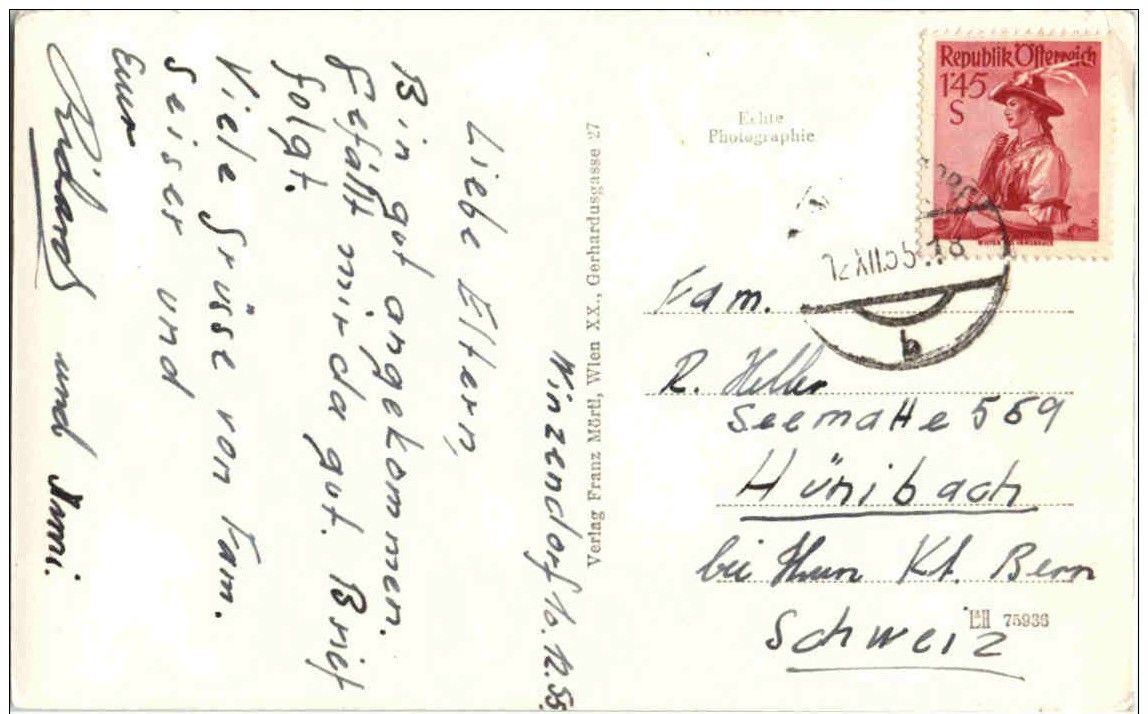 Winzendorf 10.12.55.
Liebe Eltern,
Bin gut angekommen.
Gefällt mir da gut. Brief
folgt.
Viele Grüsse von Fam.
Seiser und
Euer
Richard und Immi.
Verlag Franz Mörtl, Wien XX., Gerhardusgasse 27
Echte
Photographie
Republik Österreich
1'45
S
12.XII.55.18
b
Fam.
R. Heller
Seematte 569
Hünibach
bei Thun Kt. Bern
Schweiz
75936